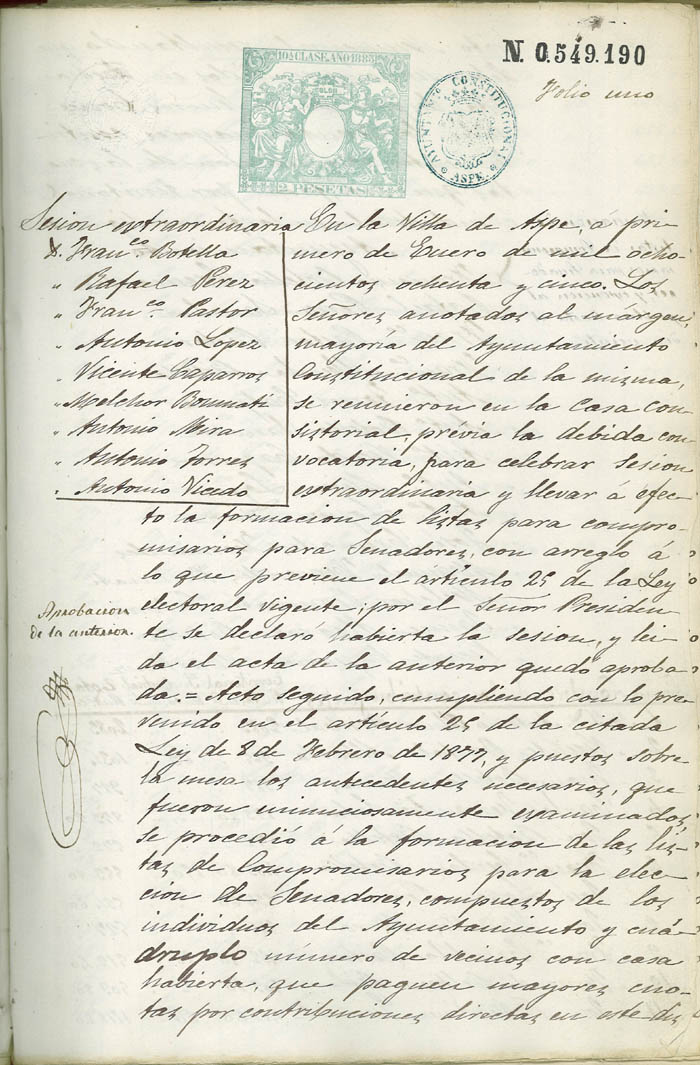 N. 0.549.190
Folio uno
10ª CLASE. AÑO 1885
2 PESETAS
AYUNTAMTO CONSTITUCIONAL
ASPE
Sesion extraordinaria
D. Franco. Botella
" Rafael Perez
" Franco. Pastor
" Antonio Lopez
" Vicente Caparros
" Melchor Bonmati
" Antonio Mira
" Antonio Torres
" Antonio Vicedo
En la Villa de Aspe, a pri-
mero de Enero de mil ocho-
cientos ochenta y cinco. Los
Señores anotados al margen,
mayoría del Ayuntamiento
Constitucional de la misma,
se reunieron en la Casa Con-
sistorial, prévia la debida con-
vocatoria, para celebrar sesion
extraordinaria y llevar á efec-
to la formacion de listas para compro-
misarios para Senadores, con arreglo á
lo que previene el artículo 25 de la Ley
electoral vigente; por el Señor Presiden-
te se declaró habierta la sesion, y lei-
da el acta de la anterior quedó aproba-
da. = Acto seguido, cumpliendo con lo pre-
venido en el artículo 25 de la citada
Ley de 8 de Febrero de 1877, y puestos sobre
la mesa los antecedentes necesarios, que
fueron minuciosamente examinados,
se procedió á la formacion de las lis-
tas de Compromisarios para la elec-
cion de Senadores, compuestos de los
individuos del Ayuntamiento y cuá-
druplo número de vecinos con casa
habierta, que paguen mayores cuo-
tas por contribuciones directas en este dis
Aprobacion
de la anterior.